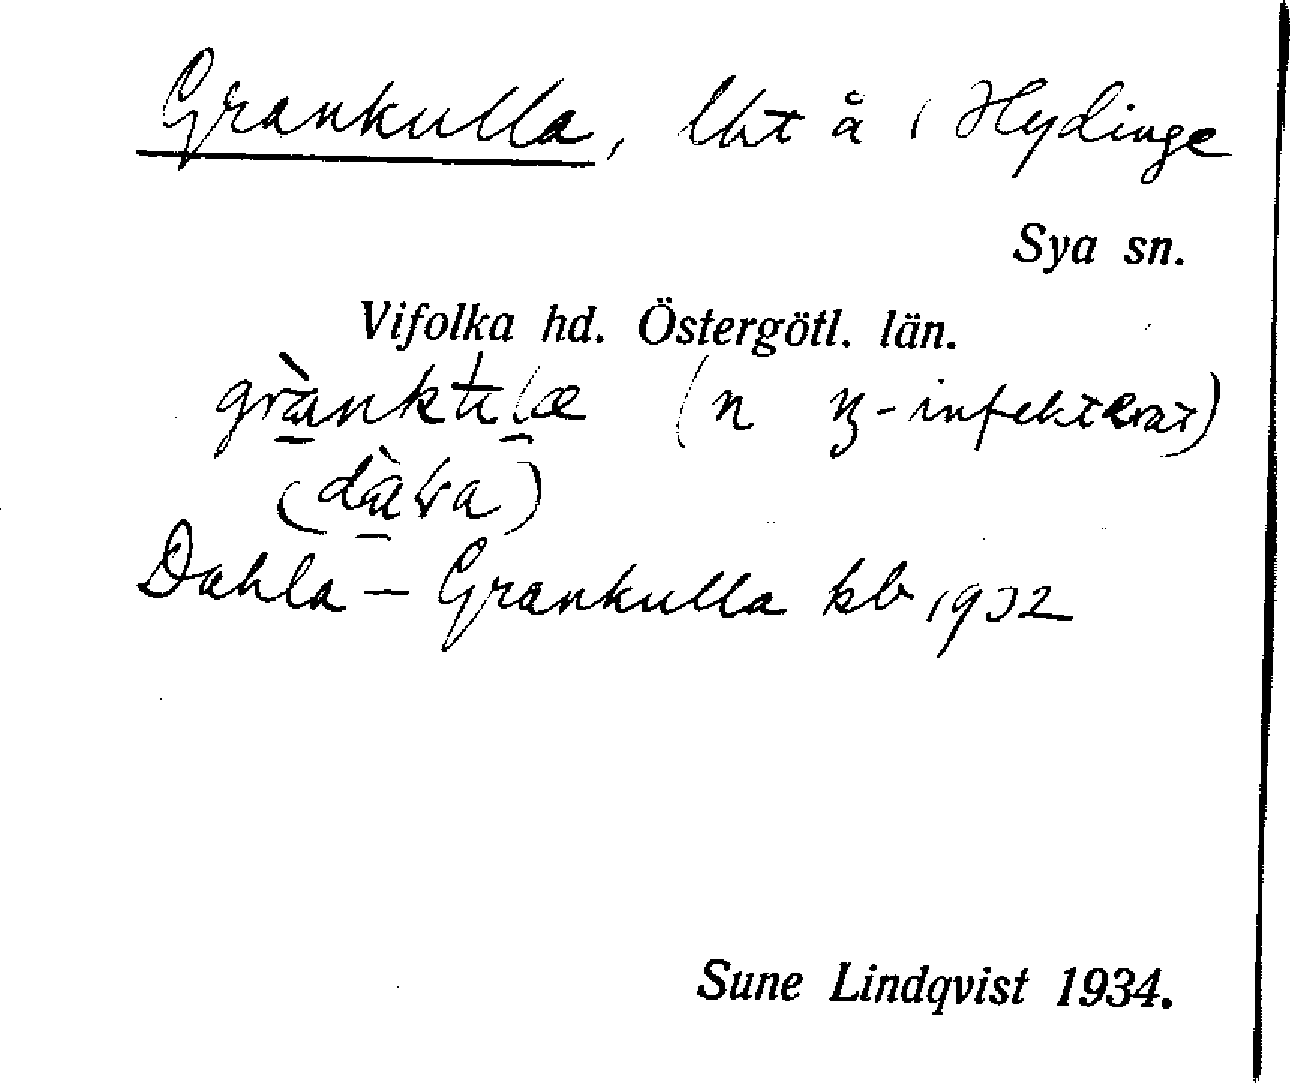 Grankulla, lht å i Hydinge
Sya sn.
Vifolka hd. Östergötl. län.
(n ŋ-infekterat)
Dahla – Grankulla kb 1932
Sune Lindqvist 1934.